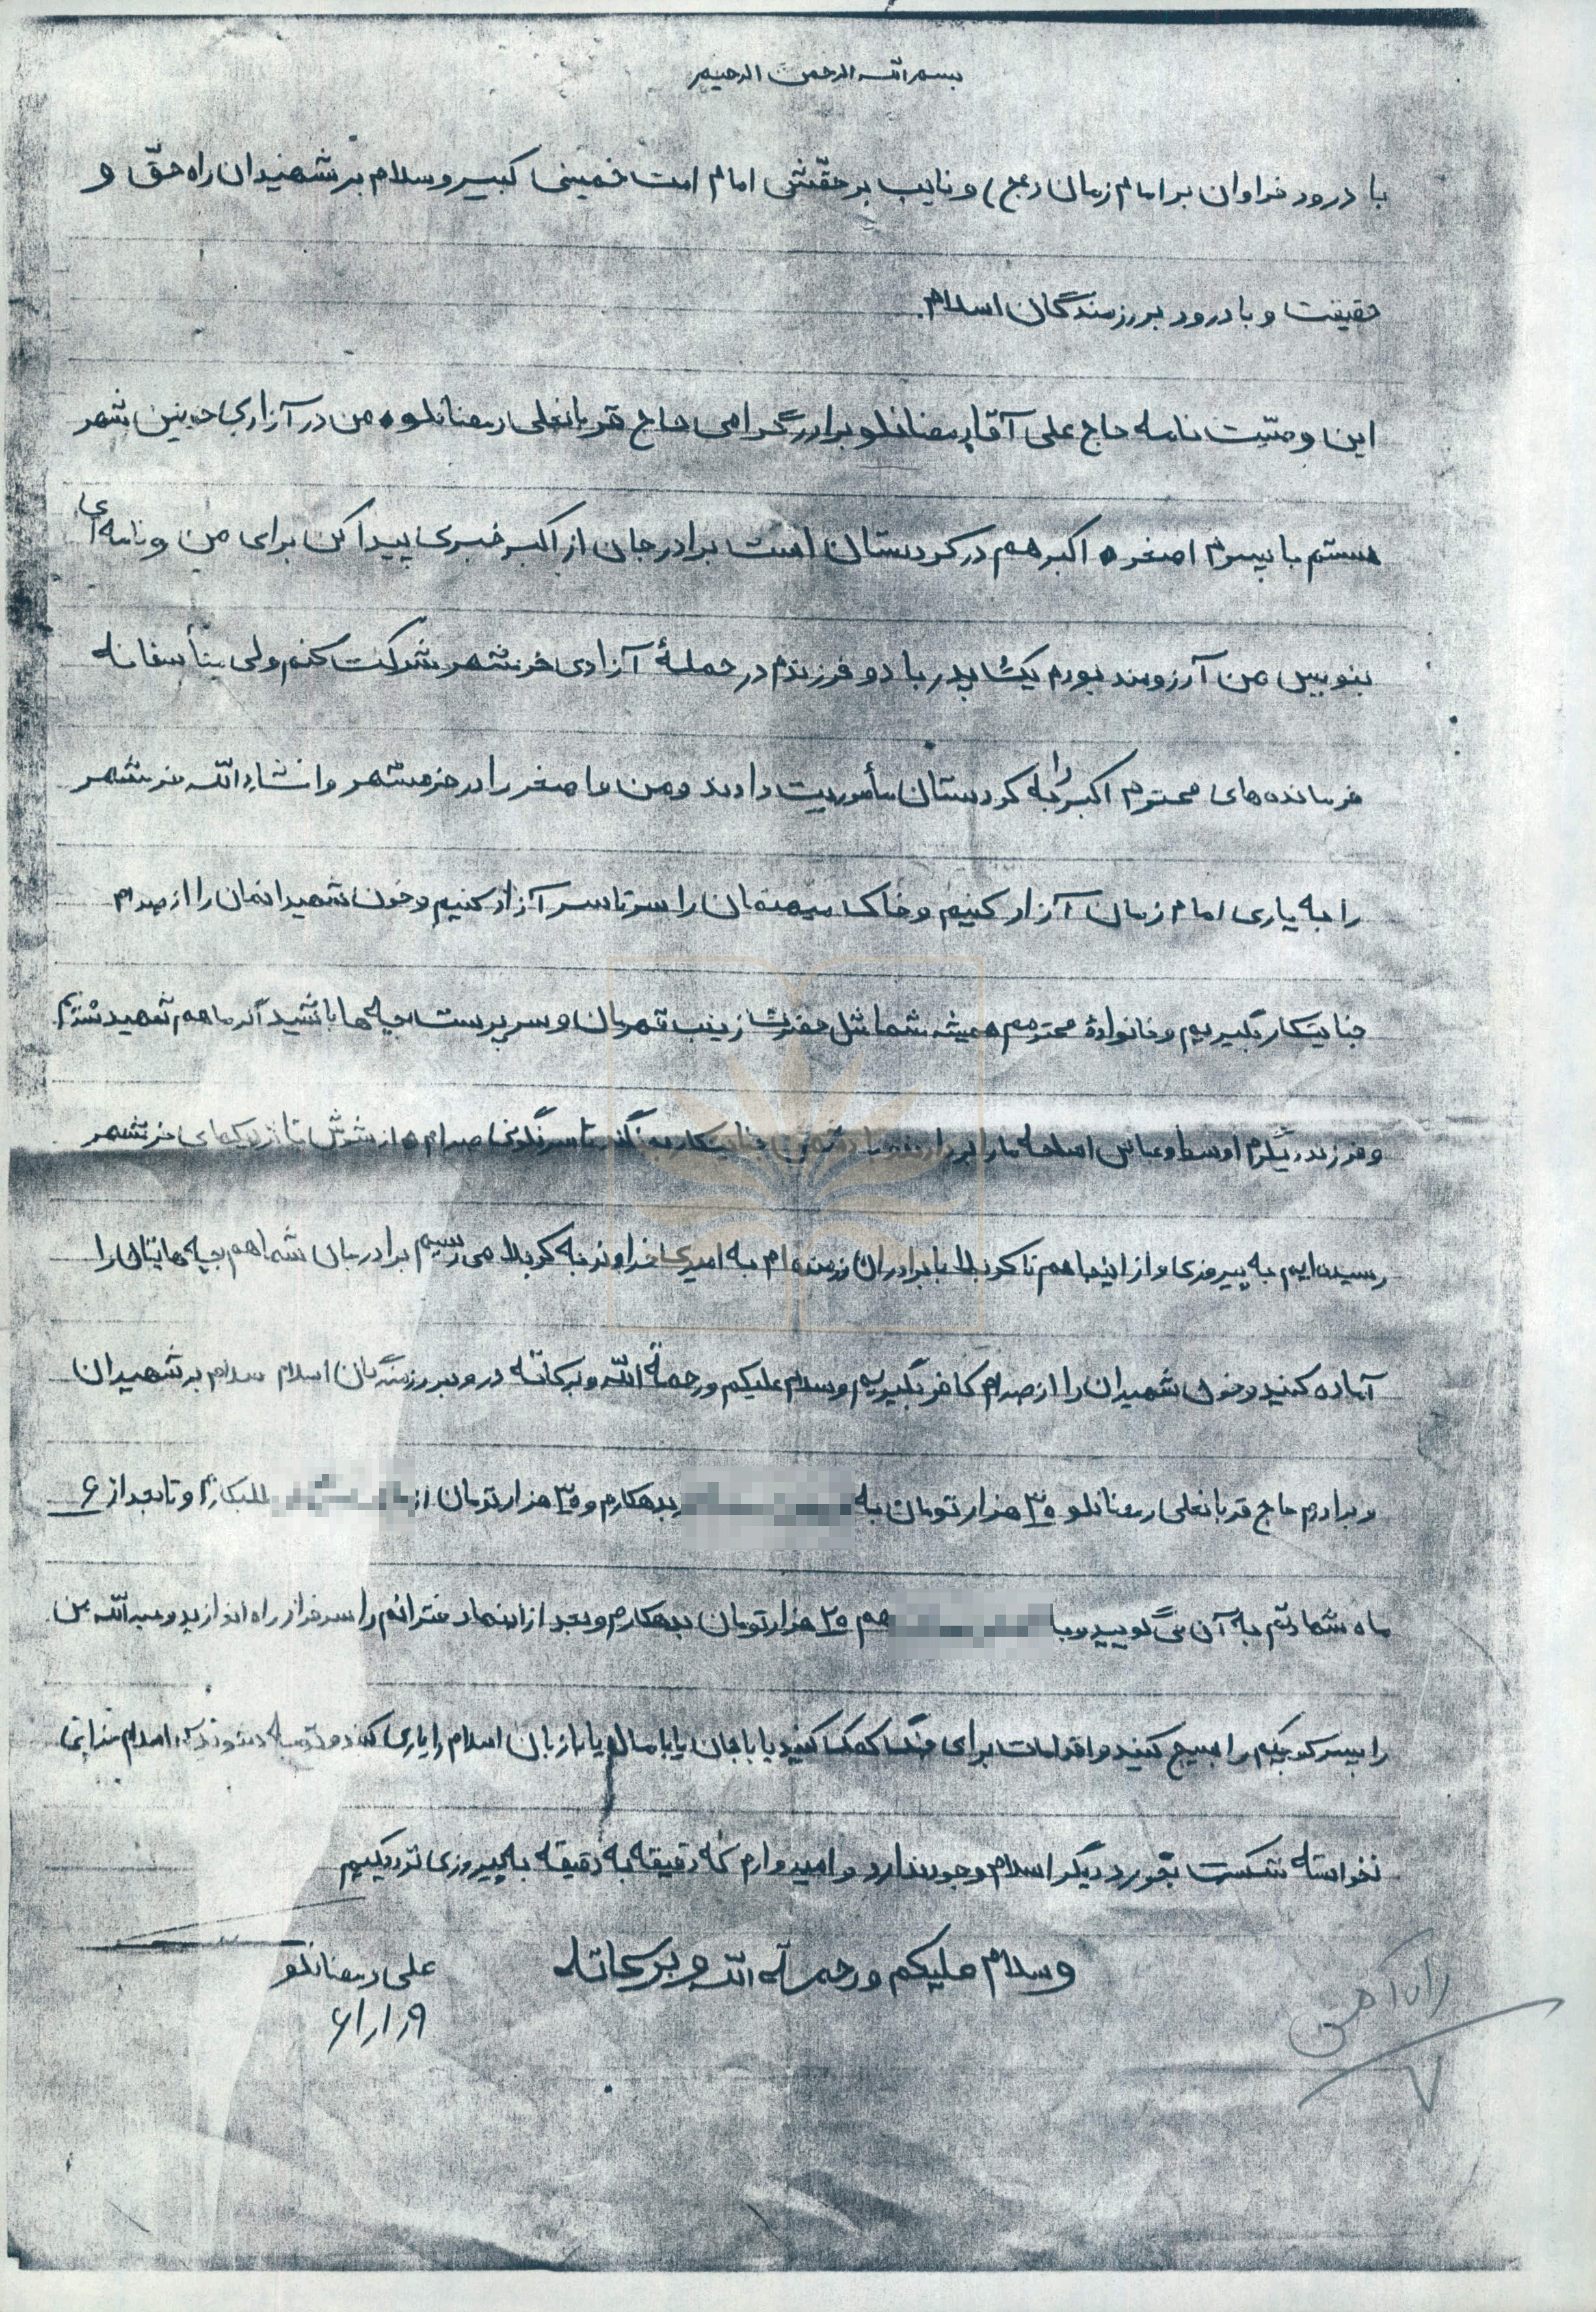 بسم الله الرحمن الرحیم
با درود فراوان بر امام زمان (عج) و نایب بر حقّش امام امت خمینی کبیر و سلام بر شهیدان راه حقّ و
حقیقت و با درود بر رزمندگان اسلام.
این وصیّت نامه حاج علی آقا رمضانلو برادر گرامی حاج قربانعلی رمضانلو من در آزادی خونین شهر
هستم با پسرم اصغر و اکبر هم در کردستان است برادر جان از اکبر خبری پیدا کن برای من و نامه ای
بنویس من آرزومند بودم یک پدر با دو فرزندم در حملهٔ آزادی خرمشهر شرکت کنم ولی متأسفانه
فرمانده های محترم اکبر را به کردستان مأموریت دادند و من و اصغر را در خرمشهر و انشاء الله خرمشهر
را به یاری امام زمان آزاد کنیم و خاک میهنمان را سرتاسر آزاد کنیم و خون شهیدانمان را از صدام
جنایتکار بگیریم و خانوادهٔ محترمم همیشه شما مثل حضرت زینب قهرمان و سرپرست بچه ها باشید اگر ما هم شهید شدیم
و فرزند دیگرم اوسط و عباس اسلحه ما را بردارند و با دشمن جنایتکار بجنگند تا سرنگونی صدام و از شوش تا نزدیکهای خرمشهر
رسیده ایم به پیروزی و از اینجا هم تا کربلا با برادران رزمنده ام به امید خداوند به کربلا می رسیم برادر جان شما هم بچه هایتان را
آماده کنید و خون شهیدان را از صدام کافر بگیریم و سلام علیکم و رحمة الله و برکاته درود بر رزمندگان اسلام سلام بر شهیدان
و برادرم حاج قربانعلی رمضانلو ۳۰ هزار تومان به بدهکارم و ۳۵ هزار تومان از طلبکارم و تا بعد از ۶
ماه شهادتم به آن نمی گویید و با هم ۲۰ هزار تومان بدهکارم و بعد از اینها دخترانم را سرفراز راه اندازید و عبدالله من
را پسر کوچکم را بسیج کنید و اقدامات برای جنگ کمک کنید یا با جان یا با مال یا با زبان اسلام را یاری کنند اسلام خدای
نخواسته شکست بخورد دیگر اسلام وجود ندارد و امیدوارم که دقیقه به دقیقه به پیروزی نزدیکیم
و سلام علیکم و رحمة الله و برکاته
علی رمضانلو
۶۱/۱/۹